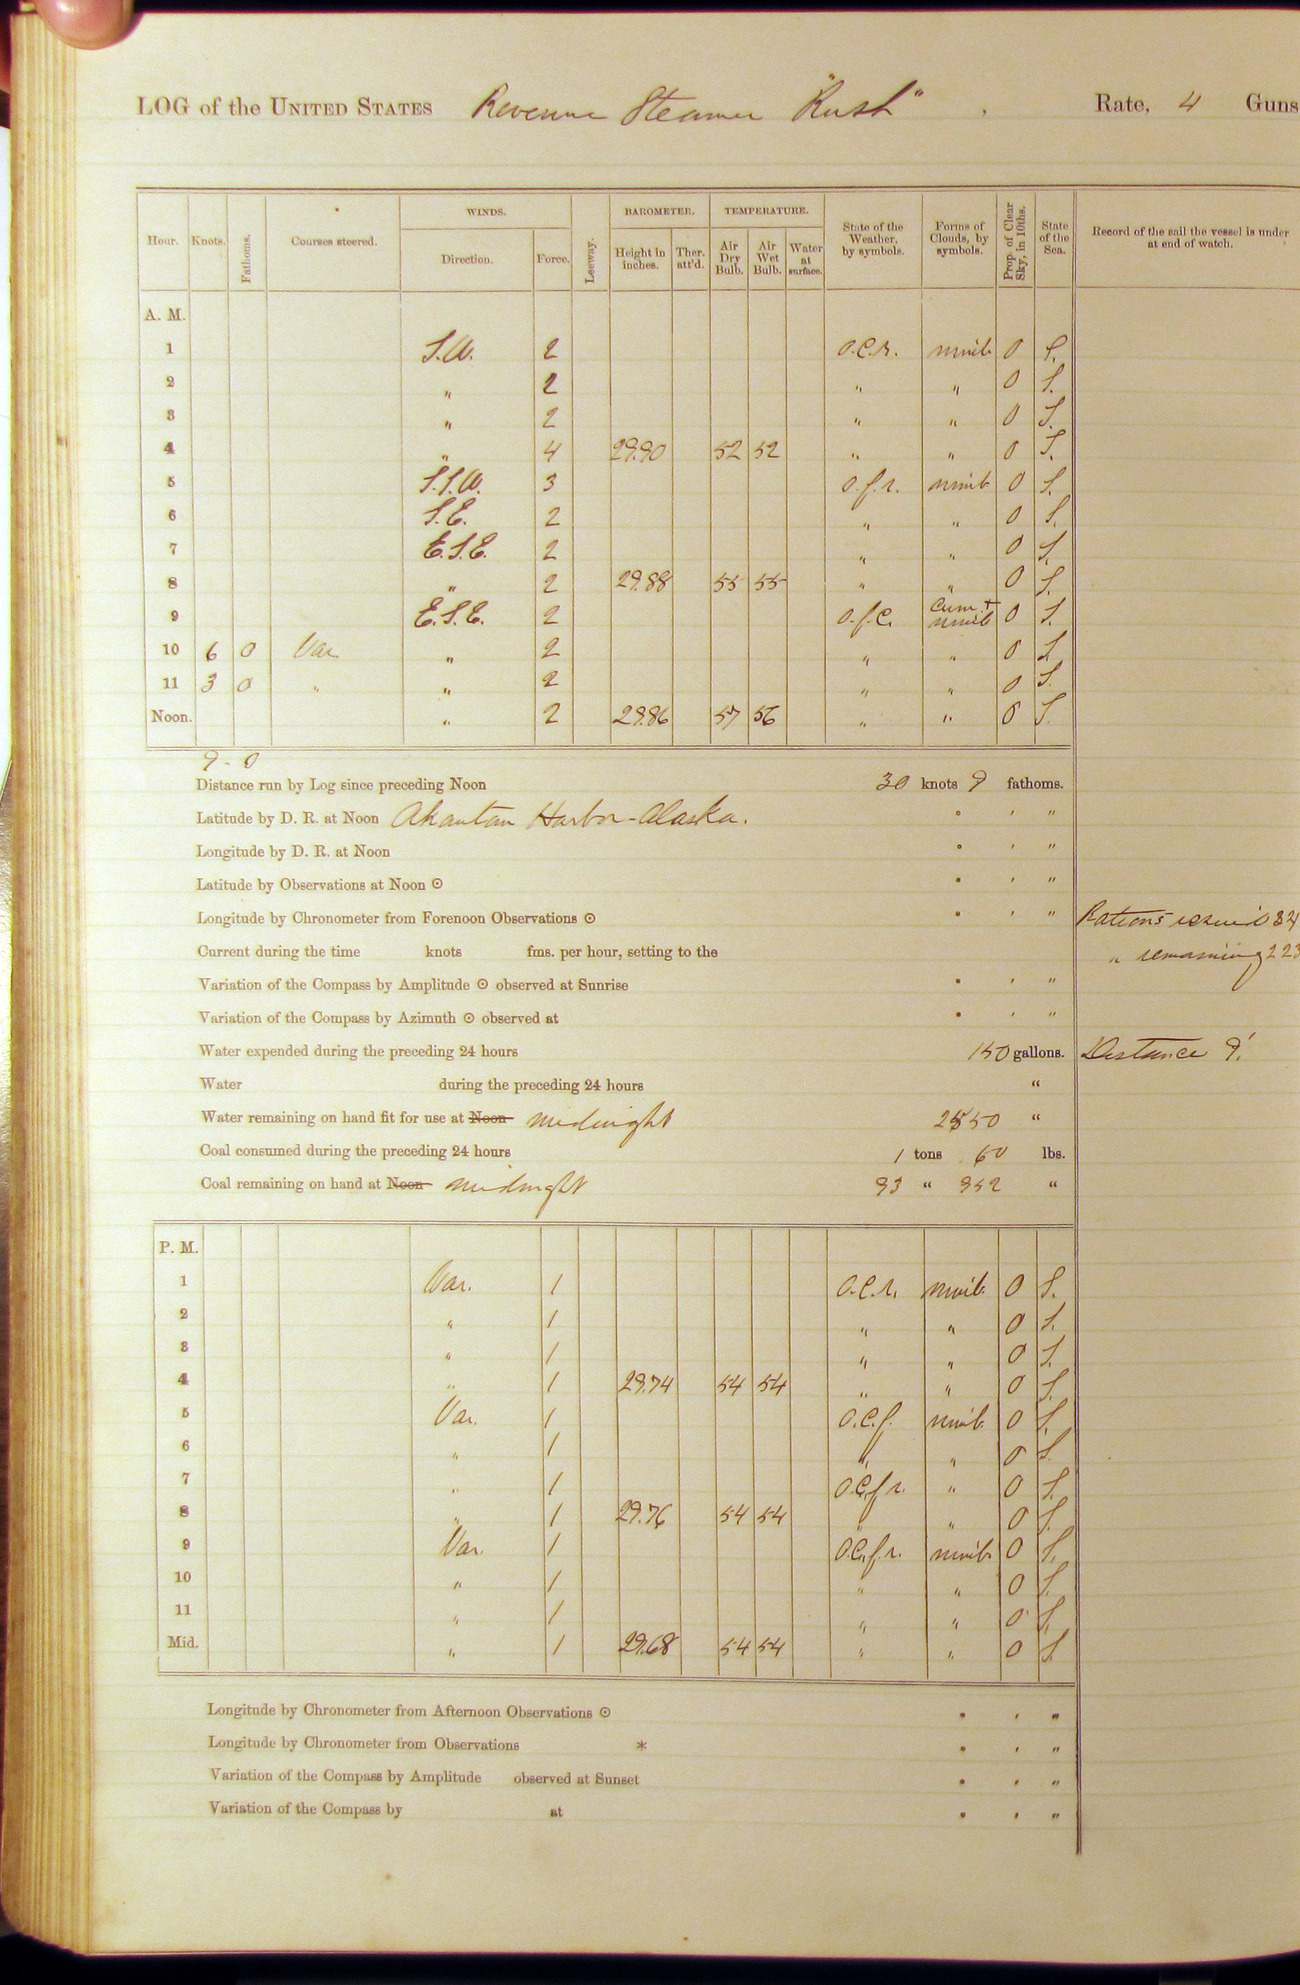 LOG of the UNITED STATES Revenue Steamer "Rush", Rate, 4 Guns
Hour. Knots. Fathoms. Courses steered. WINDS. Direction. Force. Leeway. BAROMETER. Height in inches. Ther. att'd. TEMPERATURE. Air Dry Bulb. Air Wet Bulb. Water at surface. State of the Weather, by symbols. Forms of Clouds, by symbols. Prop. of Clear Sky, in 10ths. State of the Sea. Record of the sail the vessel is under at end of watch.
A. M.
1 S.W. 2 o.c.r. nimb 0 S.
2 " 2 " " 0 S.
3 " 2 " " 0 S.
4 " 4 29.90 52 52 " " 0 S.
5 S.S.W. 3 o.f.r. nimb 0 S.
6 S.E. 2 " " 0 S.
7 E.S.E. 2 " " 0 S.
8 " 2 29.88 55 55 " " 0 S.
9 E.S.E. 2 o.f.c. Cum. + nimb 0 S.
10 6 0 Var. " 2 " " 0 S.
11 3 0 " " 2 " " 0 S.
Noon. " 2 29.86 57 56 " " 0 S.
9 - 0
Distance run by Log since preceding Noon 30 knots 9 fathoms.
Latitude by D. R. at Noon Akantan Harbor - Alaska. ° ' "
Longitude by D. R. at Noon ° ' "
Latitude by Observations at Noon ⊙ ° ' "
Longitude by Chronometer from Forenoon Observations ⊙ ° ' " Rations 34
Current during the time knots fms. per hour, setting to the " remaining 223
Variation of the Compass by Amplitude ⊙ observed at Sunrise ° ' "
Variation of the Compass by Azimuth ⊙ observed at ° ' "
Water expended during the preceding 24 hours 150 gallons. Distance 9'.
Water during the preceding 24 hours "
Water remaining on hand fit for use at Noon midnight 2550 "
Coal consumed during the preceding 24 hours 1 tons 60 lbs.
Coal remaining on hand at Noon midnight 93 " 952 "
P. M.
1 Var. 1 o.c.r. nimb. 0 S.
2 " 1 " " 0 S.
3 " 1 " " 0 S.
4 " 1 29.74 54 54 " " 0 S.
5 Var. 1 o.c.f. nimb. 0 S.
6 " 1 " " 0 S.
7 " 1 o.c.f.r. " 0 S.
8 " 1 29.76 54 54 " " 0 S.
9 Var. 1 o.c.f.r. nimb 0 S.
10 " 1 " " 0 S.
11 " 1 " " 0 S.
Mid. " 1 29.68 54 54 " " 0 S.
Longitude by Chronometer from Afternoon Observations ⊙ ° ' "
Longitude by Chronometer from Observations * ° ' "
Variation of the Compass by Amplitude observed at Sunset ° ' "
Variation of the Compass by at ° ' "